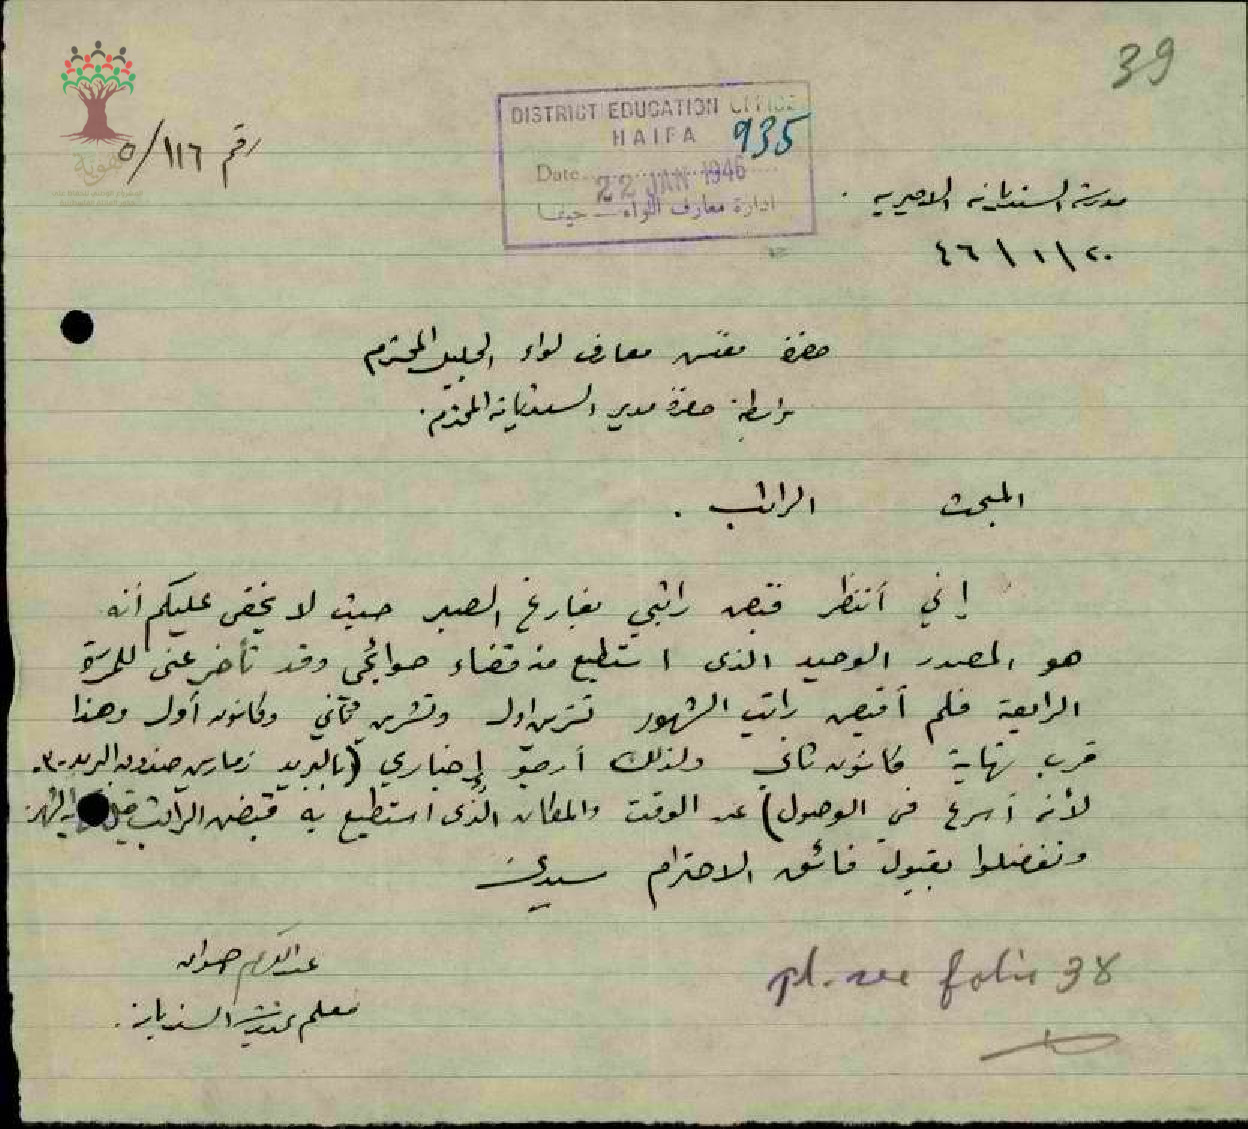 39
رقم ١١٦/٥
DISTRICT EDUCATION OFFICE
HAIFA
935
Date
22 JAN 1946
ادارة معارف اللواء - حيفا
مدرسة السنديانة الاميرية.
٢٠/١/٤٦
حضرة مفتش معارف لواء الجليل المحترم
بواسطة حضرة مدير السنديانة المحترم.
المبحث الراتب.
إني أنتظر قبض راتبي بفارغ الصبر حيث لا يخفى عليكم أنه
هو المصدر الوحيد الذى استطيع منه قضاء حوائجي وقد تأخر عني للمرة
الرابعة فلم أقبض راتب الشهور تشرين اول وتشرين ثاني وكانون أول وهذا
قرب نهاية كانون ثاني ولذلك أرجو إخباري (بالبريد زمارين صندوق البريد ٣٠
لأنه أسرع في الوصول) عن الوقت والمكان الذى استطيع به قبض الراتب قبل
وتفضلوا بقبول فائق الاحترام سيدي
عبد الكريم
معلم مدرسة السنديانة.
pl. see folio 38